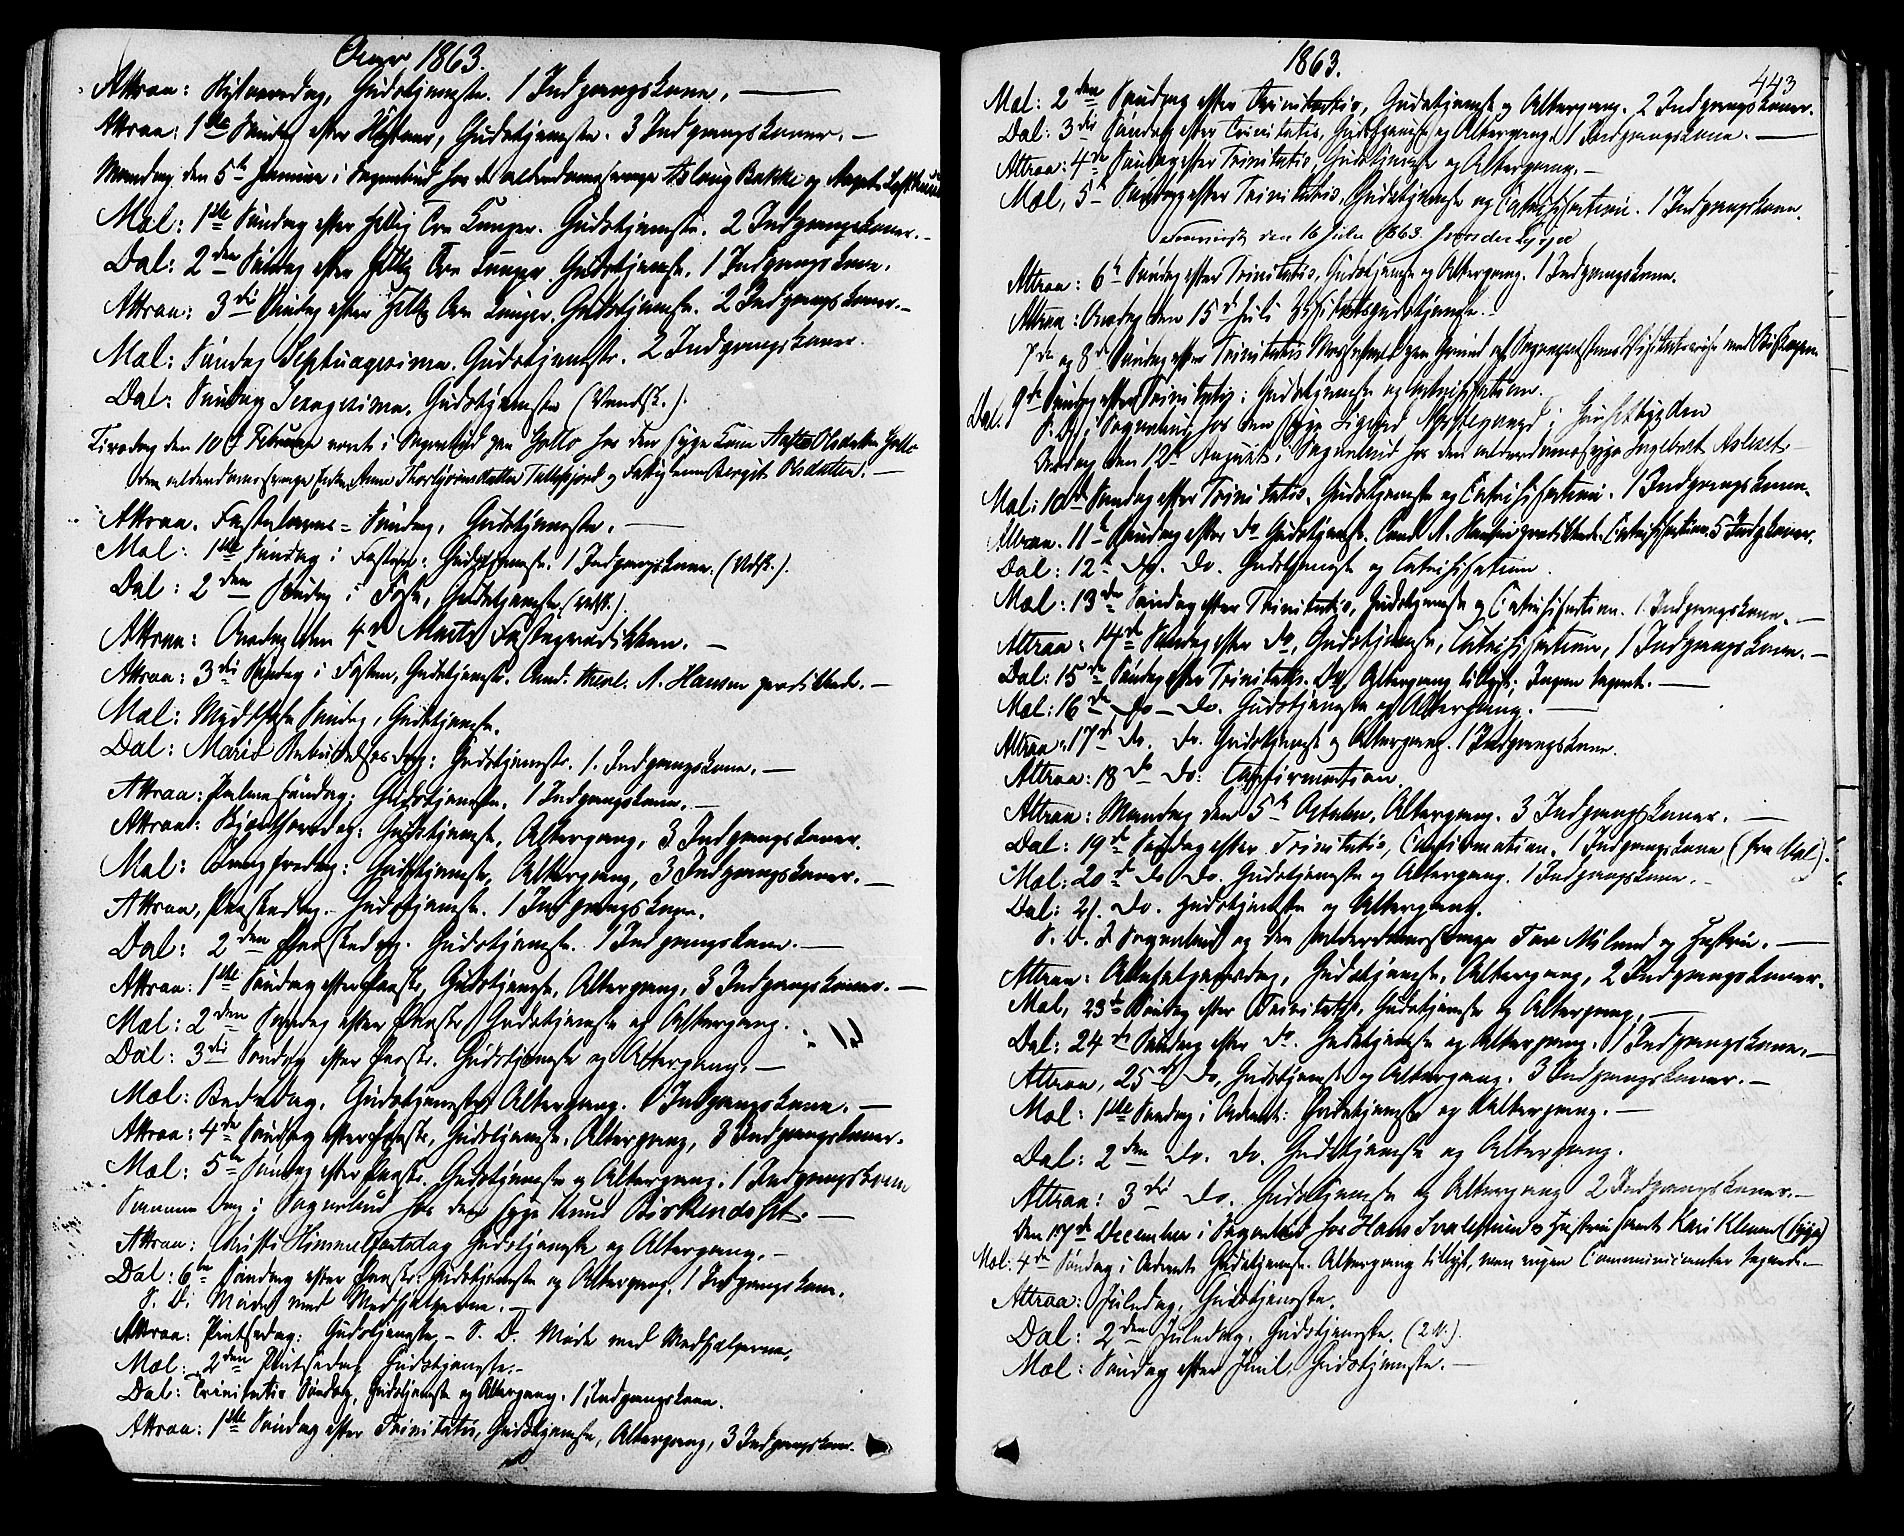 Anno 1863.
Attraa: Nytaarsdag, Gudstjeneste. 1 Indgangskone.
Attraa: 1ste Søndag efter Nytaar, Gudstjeneste. 3 Indgangskoner.
Mandag den 5te Januar i Sognebud hos de alderdomssvage Aslaug Bakke og
Mæl: 1ste Søndag efter Hellig Tre Konger. Gudstjeneste. 2 Indgangskoner.
Dal: 2den Søndag efter Hellig Tre Konger Gudstjeneste. 1 Indgangskone.
Attraa: 3die Søndag efter Hellig Tre Konger. Gudstjeneste. 2 Indgangskoner.
Mæl: Søndag Septuagesima. Gudstjeneste. 2 Indgangskoner.
Dal: Søndag Sexagesima. Gudstjeneste
Tirsdag den 10de Februar været i Sognebud paa Hollo hos den syge Kone Aaste Olsdatter Hollo
den alderdomssvage Enke Anne Thorbjørnsdatter og Fattiglem Bergit Olsdatter.
Attraa. Fastelavns-Søndag, Gudstjeneste.
Mæl: 1ste Søndag i Fasten: Gudstjeneste. 1 Indgangskone.
Dal: 2den Søndag i Faste, Gudstjeneste
Attraa: Onsdag den 4de Marts Fasteprædikken.
Attraa: 3die Søndag i Fasten, Gudstjeneste. Cand. theol. A. Hansen prædikede.
Mæl: Midfaste Søndag, Gudstjeneste.
Dal: Mariæ Bebudelsesdag: Gudstjeneste. 1. Indgangskone.
Attraa: Palmesøndag: Gudstjeneste. 1 Indgangskone.
Attraa: Skjærthorsdag: Gudstjeneste, Altergang, 3 Indgangskoner.
Mæl: Langfredag: Gudstjeneste, Altergang, 3 Indgangskoner.
Attraa, Paaskedag. Gudstjeneste. 1 Indgangskone.
Dal: 2den Paaskedag. Gudstjeneste. 1 Indgangskone.
Attraa: 1ste Søndag efter Paaske, Gudstjeneste, Altergang, 3 Indgangskoner.
Mæl: 2den Søndag efter Paaske, Gudstjeneste og Altergang.
Dal: 3die Søndag efter Paaske. Gudstjeneste og Altergang.
Mæl: Bededag. Gudstjeneste, Altergang. 1 Indgangskone.
Attraa: 4de Søndag efter Paaske, Gudstjeneste, Altergang, 3 Indgangskoner.
Mæl: 5te Søndag efter Paaske. Gudstjeneste og Altergang. 1 Indgangskone
Samme Dag i Sognebud hos den syge Knud
Attraa: Christi Himmelfartsdag Gudstjeneste og Altergang.
Dal: 6te Søndag efter Paaske: Gudstjeneste og Altergang. 1 Indgangskone.
S. D. Møde med Medhjælperne.
Attraa: Pintsedag: Gudstjeneste. S. D. Møde med Medhjælperne.
Mæl: 2den Pintsedag Gudstjeneste.
Dal: Trinitatis Søndag, Gudstjeneste og Altergang. 1 Indgangskone.
Attraa: 1ste Søndag efter Trinitatis, Gudstjeneste, Altergang, 3 Indgangskoner.
1863.
443
Mæl: 2den Søndag efter Trinitatis, Gudstjeneste og Altergang. 2 Indgangskoner.
Dal: 3die Søndag efter Trinitatis, Gudstjeneste og Altergang. 1 Indgangskone.
Attraa: 4de Søndag efter Trinitatis, Gudstjeneste og Altergang.
Mæl, 5te Søndag efter Trinitatis, Gudstjeneste og Catechisation. 1 Indgangskone.
den 16 Juli 1863.
Attraa: 6te Søndag efter Trinitatis, Gudstjeneste og Altergang. 1 Indgangskone.
Attraa: Onsdag den 15de Juli Visitatsgudstjeneste.
7de og 8de Søndag efter Trinitatis Messefald paa Grund af Sognepræstens Visitatsreise med Biskopen.
Dal. 9de Søndag efter Trinitatis: Gudstjeneste og Catechisation.
S. D. i Sognebud hos den syge Sigrid
Onsdag den 12te August i Sognebud hos den alderdomssvage Ingebret
Mæl: 10de Søndag efter Trinitatis, Gudstjeneste og Catechisation. 1 Indgangskone.
Attraa. 11te Søndag efter Do Gudstjeneste. Cand. A. Hansen prædikede. Catechisation. 5 Indg.koner.
Dal: 12te Do. Do. Gudstjeneste og Catechisation.
Mæl: 13de Søndag efter Trinitatis, Gudstjeneste og Catechisation. 1 Indgangskone.
Attraa: 14de Søndag efter Do, Gudstjeneste, Catechisation, 1 Indgangskone.
Dal: 15de Søndag efter Trinitatis. Do, Altergang tillyst; Ingen tegnet.
Mæl: 16de Do - Do. Gudstjeneste og Altergang.
Attraa: 17de Do. Do. Gudstjeneste og Altergang. 1 Indgangskone.
Attraa: 18de Do: Confirmation.
Attraa: Mandag den 5te October, Altergang. 3 Indgangskoner.
Dal: 19de Søndag efter Trinitatis, Confirmation. 1 Indgangskone (fra Mæl).
Mæl: 20de Do Do. Gudstjeneste og Altergang. 1 Indgangskone.
Dal: 21. Do. Gudstjeneste og Altergang.
S. D. I Sognebud og den alderdomssvage Tov Myland og Hustru.
Attraa: Allehelgensdag, Gudstjeneste, Altergang, 2 Indgangskoner.
Mæl, 23de Søndag efter Trinitatis, Gudstjeneste og Altergang.
Dal: 24de Søndag efter Do. Gudstjeneste og Altergang. 1 Indgangskone.
Attraa, 25de Do, Gudstjeneste og Altergang. 3 Indgangskoner.
Mæl: 1ste Søndag i Advent: Gudstjeneste og Altergang.
Dal: 2den Do. Do. Gudstjeneste og Altergang.
Attraa: 3die Do. Gudstjeneste og Altergang 2 Indgangskoner.
Den 17de December i Sognebud hos Hans og Hustru samt Kari (syge)
Mæl: 4de Søndag i Advent Gudstjeneste. Altergang tillyst, men ingen Communicanter tegnede.
Attraa: Juledag, Gudstjeneste.
Dal: 2den Juledag. Gudstjeneste.
Mæl: Søndag efter Juul, Gudstjeneste.